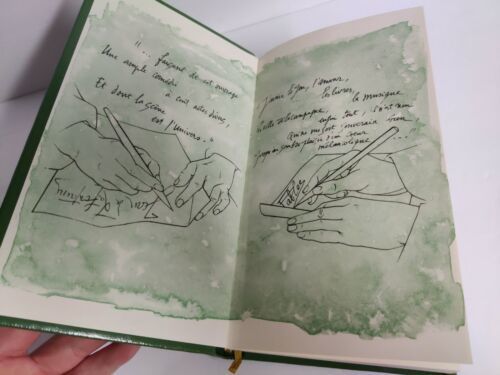 "... faisant de cet ouvrage
Une ample comédi à cent actes divers,
Et dont la scène
est l'Univers..."
J'aime le jeu, l'amour,
les livres, la musique
La ville et la campagne,
enfin tout, il n'est rien
Qui ne me soit souverain bien
Jusqu'au sombre plaisir d'un cœur
mélancolique ...
Fables